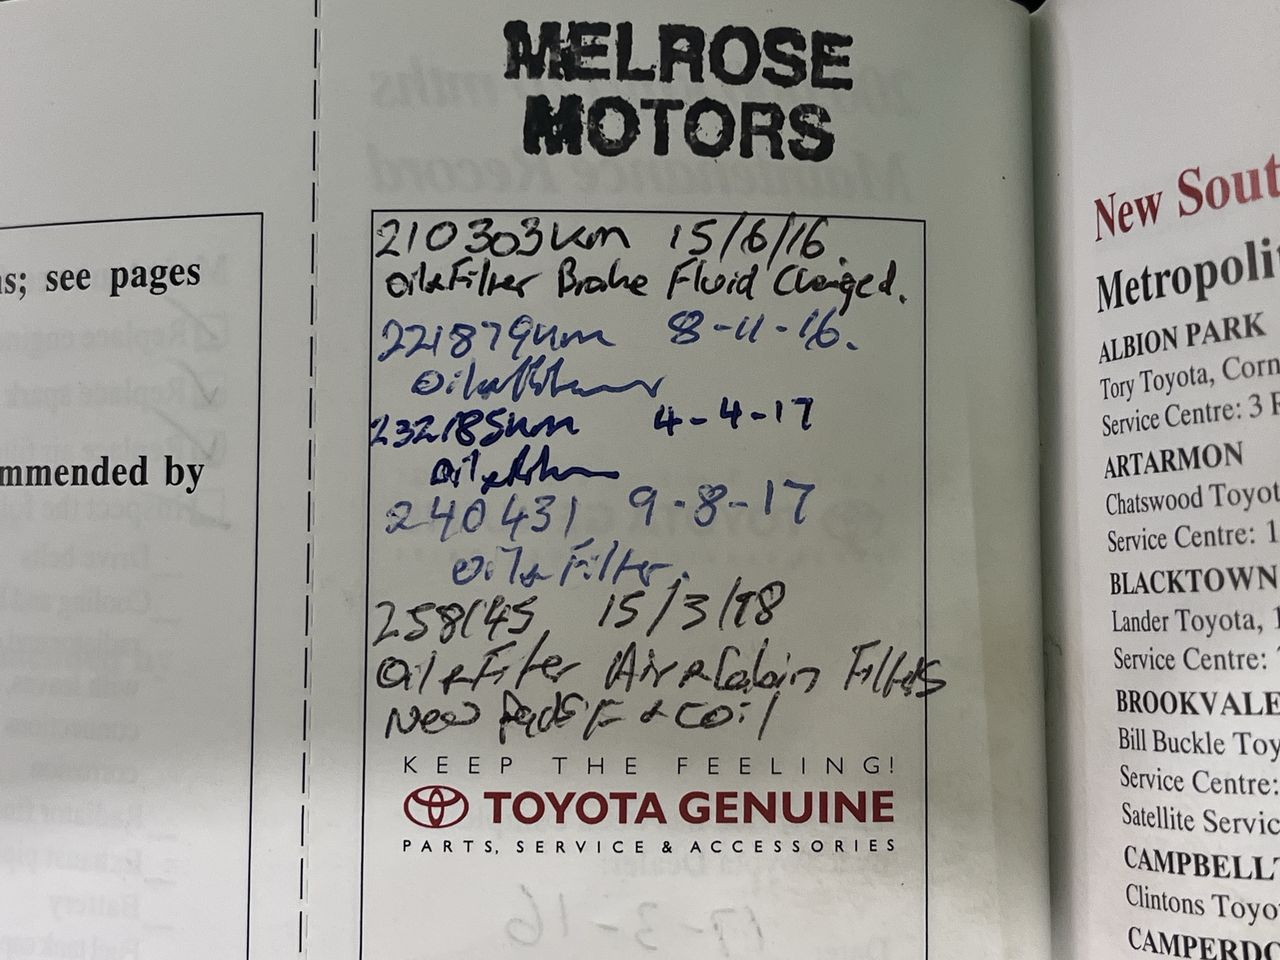 MELROSE
MOTORS
210303km 15/6/16.
oil & Filter Brake Fluid Changed.
221879km 8-11-16.
Oil &
232185km 4-4-17
Oil &
240431 9-8-17
oil & Filter.
258145 15/3/18
Oil & Filter Air & Cabin Filters
New Pads F & coil
KEEP THE FEELING!
TOYOTA GENUINE
PARTS, SERVICE & ACCESSORIES
s; see pages
mmended by
New Sout
Metropoli
ALBION PARK
Tory Toyota, Corn
Service Centre: 3
ARTARMON
Chatswood Toyot
Service Centre: 1
BLACKTOWN
Lander Toyota, 1
Service Centre:
BROOKVALE
Bill Buckle Toy
Service Centre:
Satellite Servic
CAMPBELLT
Clintons Toyo
CAMPERDO